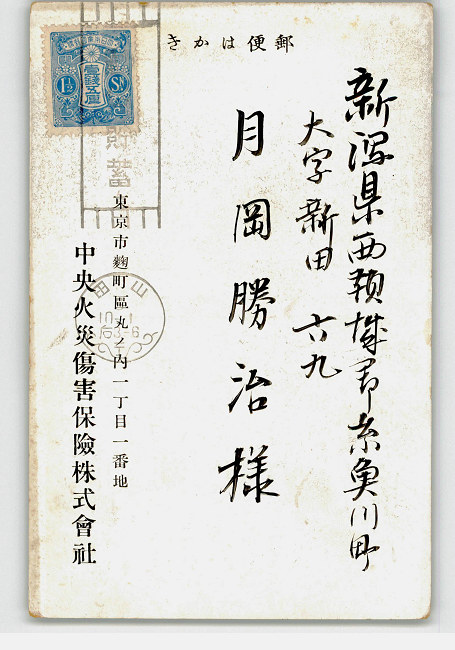 郵便はかき
新潟県西頸城郡糸魚川町
大字新田 六九
月岡勝治様
東京市麴町區丸ノ内一丁目一番地
中央火災傷害保險株式會社
1½ Sn
貯蓄